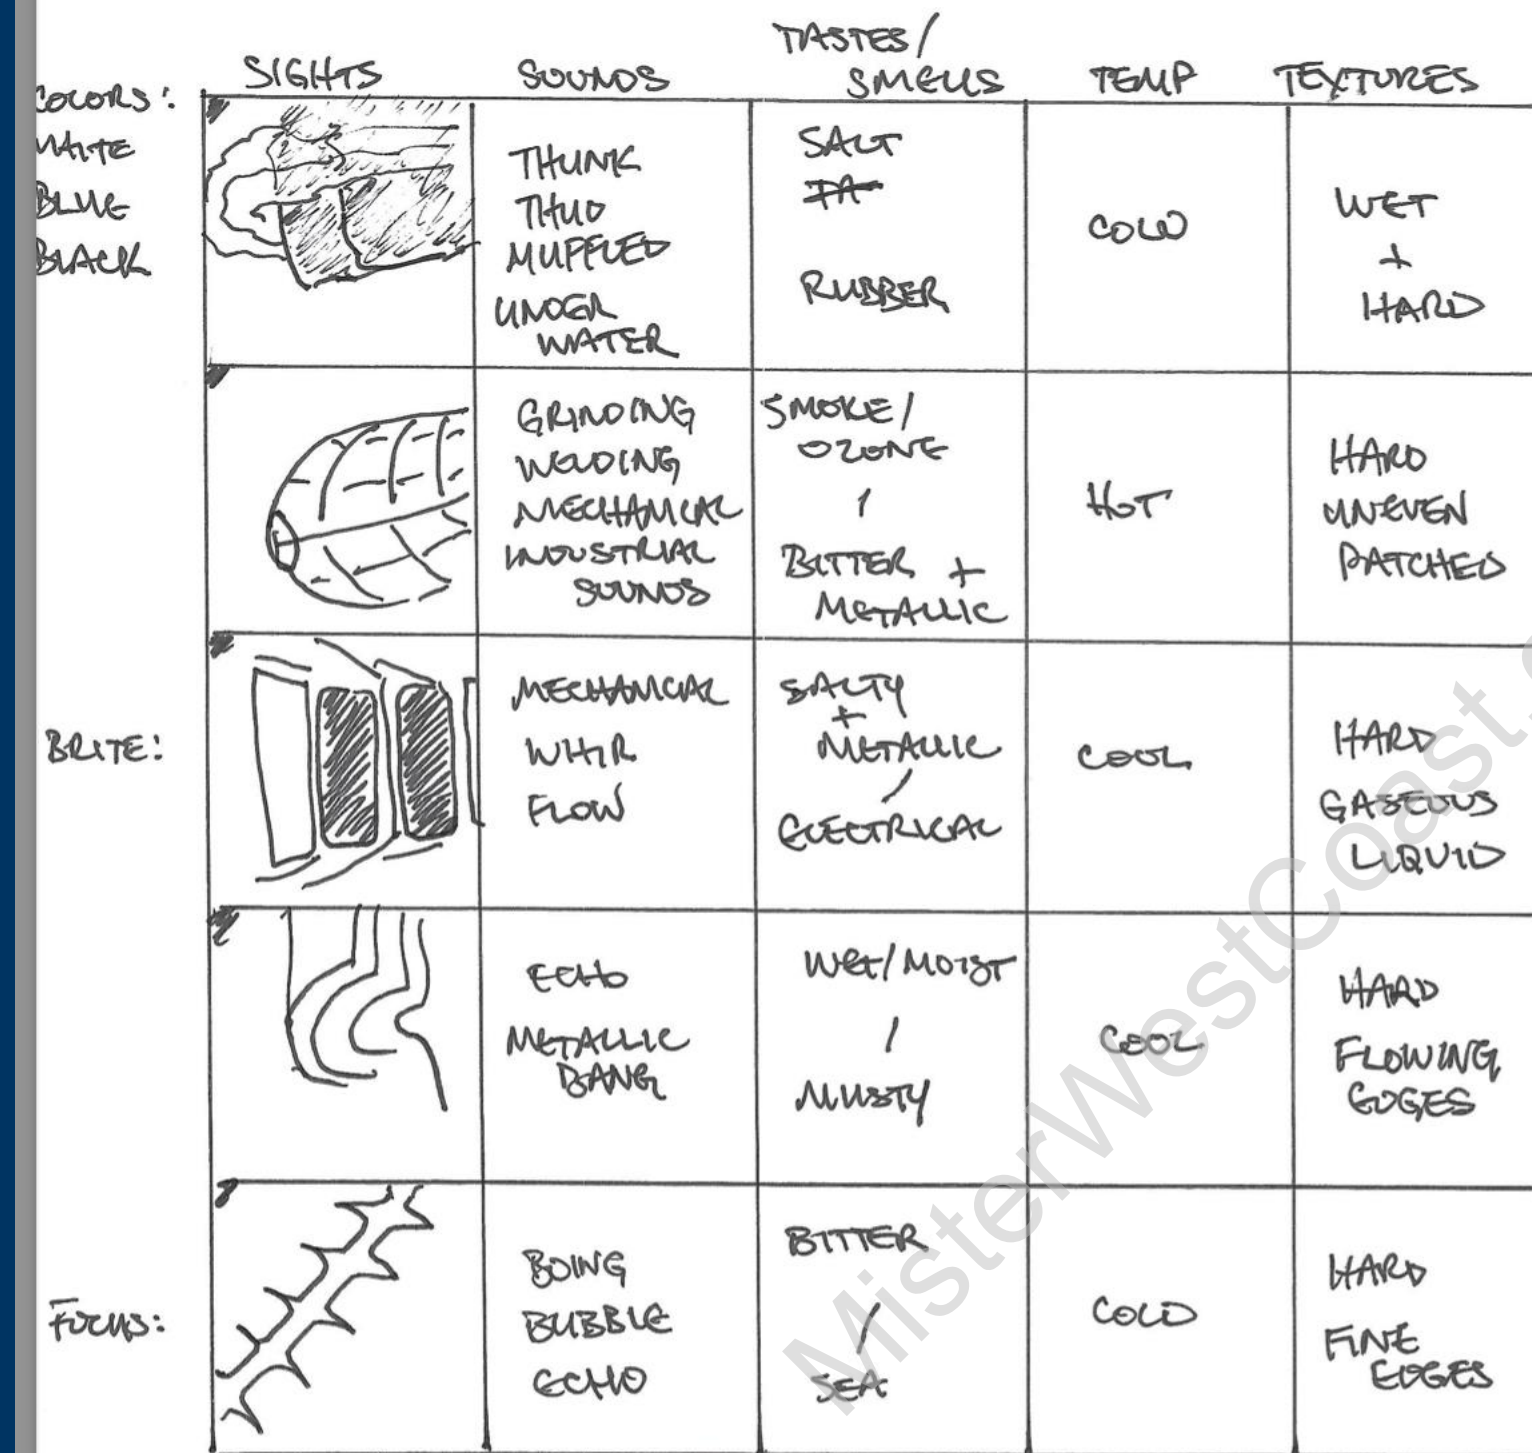 SIGHTS
SOUNDS
TASTES/
SMELLS
TEMP
TEXTURES
COLORS:
WHITE
BLUE
BLACK
THUNK
THUD
MUFFLED
UNDER
WATER
SALT
RUBBER
COLD
WET
+
HARD
GRINDING
WELDING
MECHANICAL
INDUSTRIAL
SOUNDS
SMOKE/
OZONE
/
BITTER +
METALLIC
HOT
HARD
UNEVEN
PATCHED
BRITE:
MECHANICAL
WHIR
FLOW
SALTY
+
METALLIC
/
ELECTRICAL
COOL
HARD
GASEOUS
LIQUID
ECHO
METALLIC
BANG
WET/MOIST
/
MUSTY
COOL
HARD
FLOWING
EDGES
FOCUS:
BOING
BUBBLE
ECHO
BITTER
/
SEA
COLD
HARD
FINE
EDGES
MisterWestCoast.